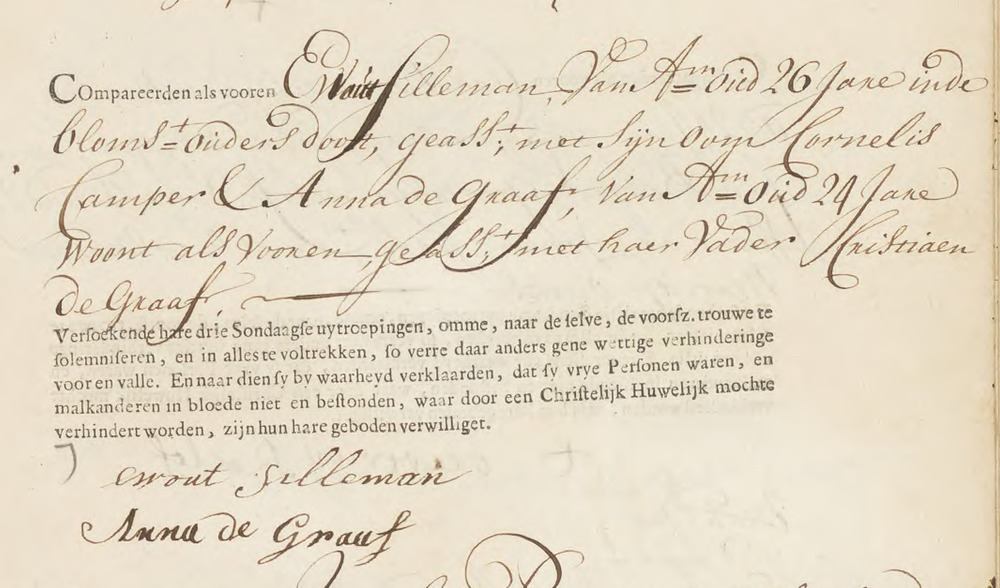 COmpareerden als vooren Ewout Silleman, Van Am= Oud 26 Jare inde
bloms:t= Ouders doot, geasst; met Sijn Oom Cornelis
Camper & Anna de Graaf, Van Am= Oud 24 Jare
Woont als Vooren, geasst; met haer Vader Cristiaen
de Graaf,
Versoekende hare drie Sondaagse uytroepingen, omme, naar de selve, de voorsz. trouwe te
solemniseren, en in alles te voltrekken, so verre daar anders gene wettige verhinderinge
voor en valle. En naar dien sy by waarheyd verklaarden, dat sy vrye Personen waren, en
malkanderen in bloede niet en bestonden, waar door een Christelijk Huwelijk mochte
verhindert worden, zijn hun hare geboden verwilliget.
ewout Silleman
Anna de Graaf